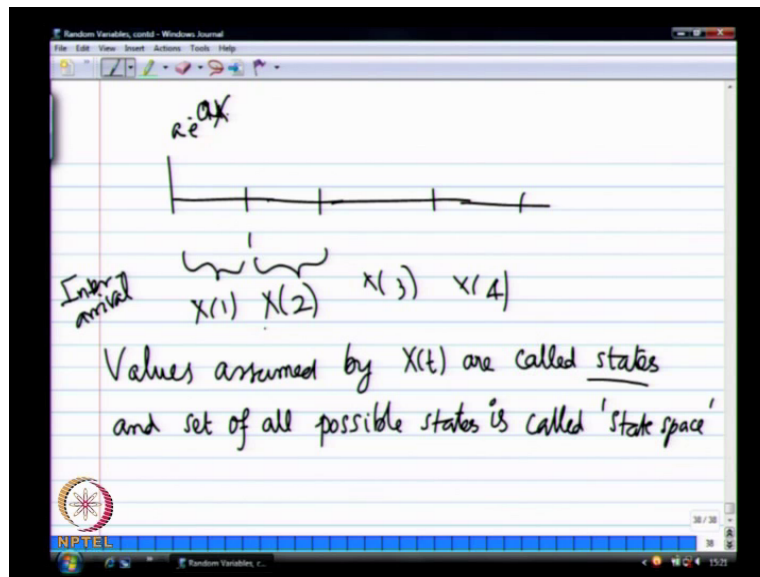 Random Variables, contd - Windows Journal
File Edit View Insert Actions Tools Help
Inter arrival
X(1) X(2) X(3) X(4)
Values assumed by X(t) are called states
and set of all possible states is called 'state space'
38 / 38
38
NPTEL
Random Variables, c...
15:21